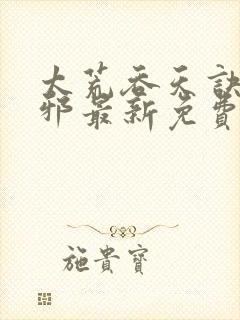 大荒吞天訣
邪最新免費
施貴寶